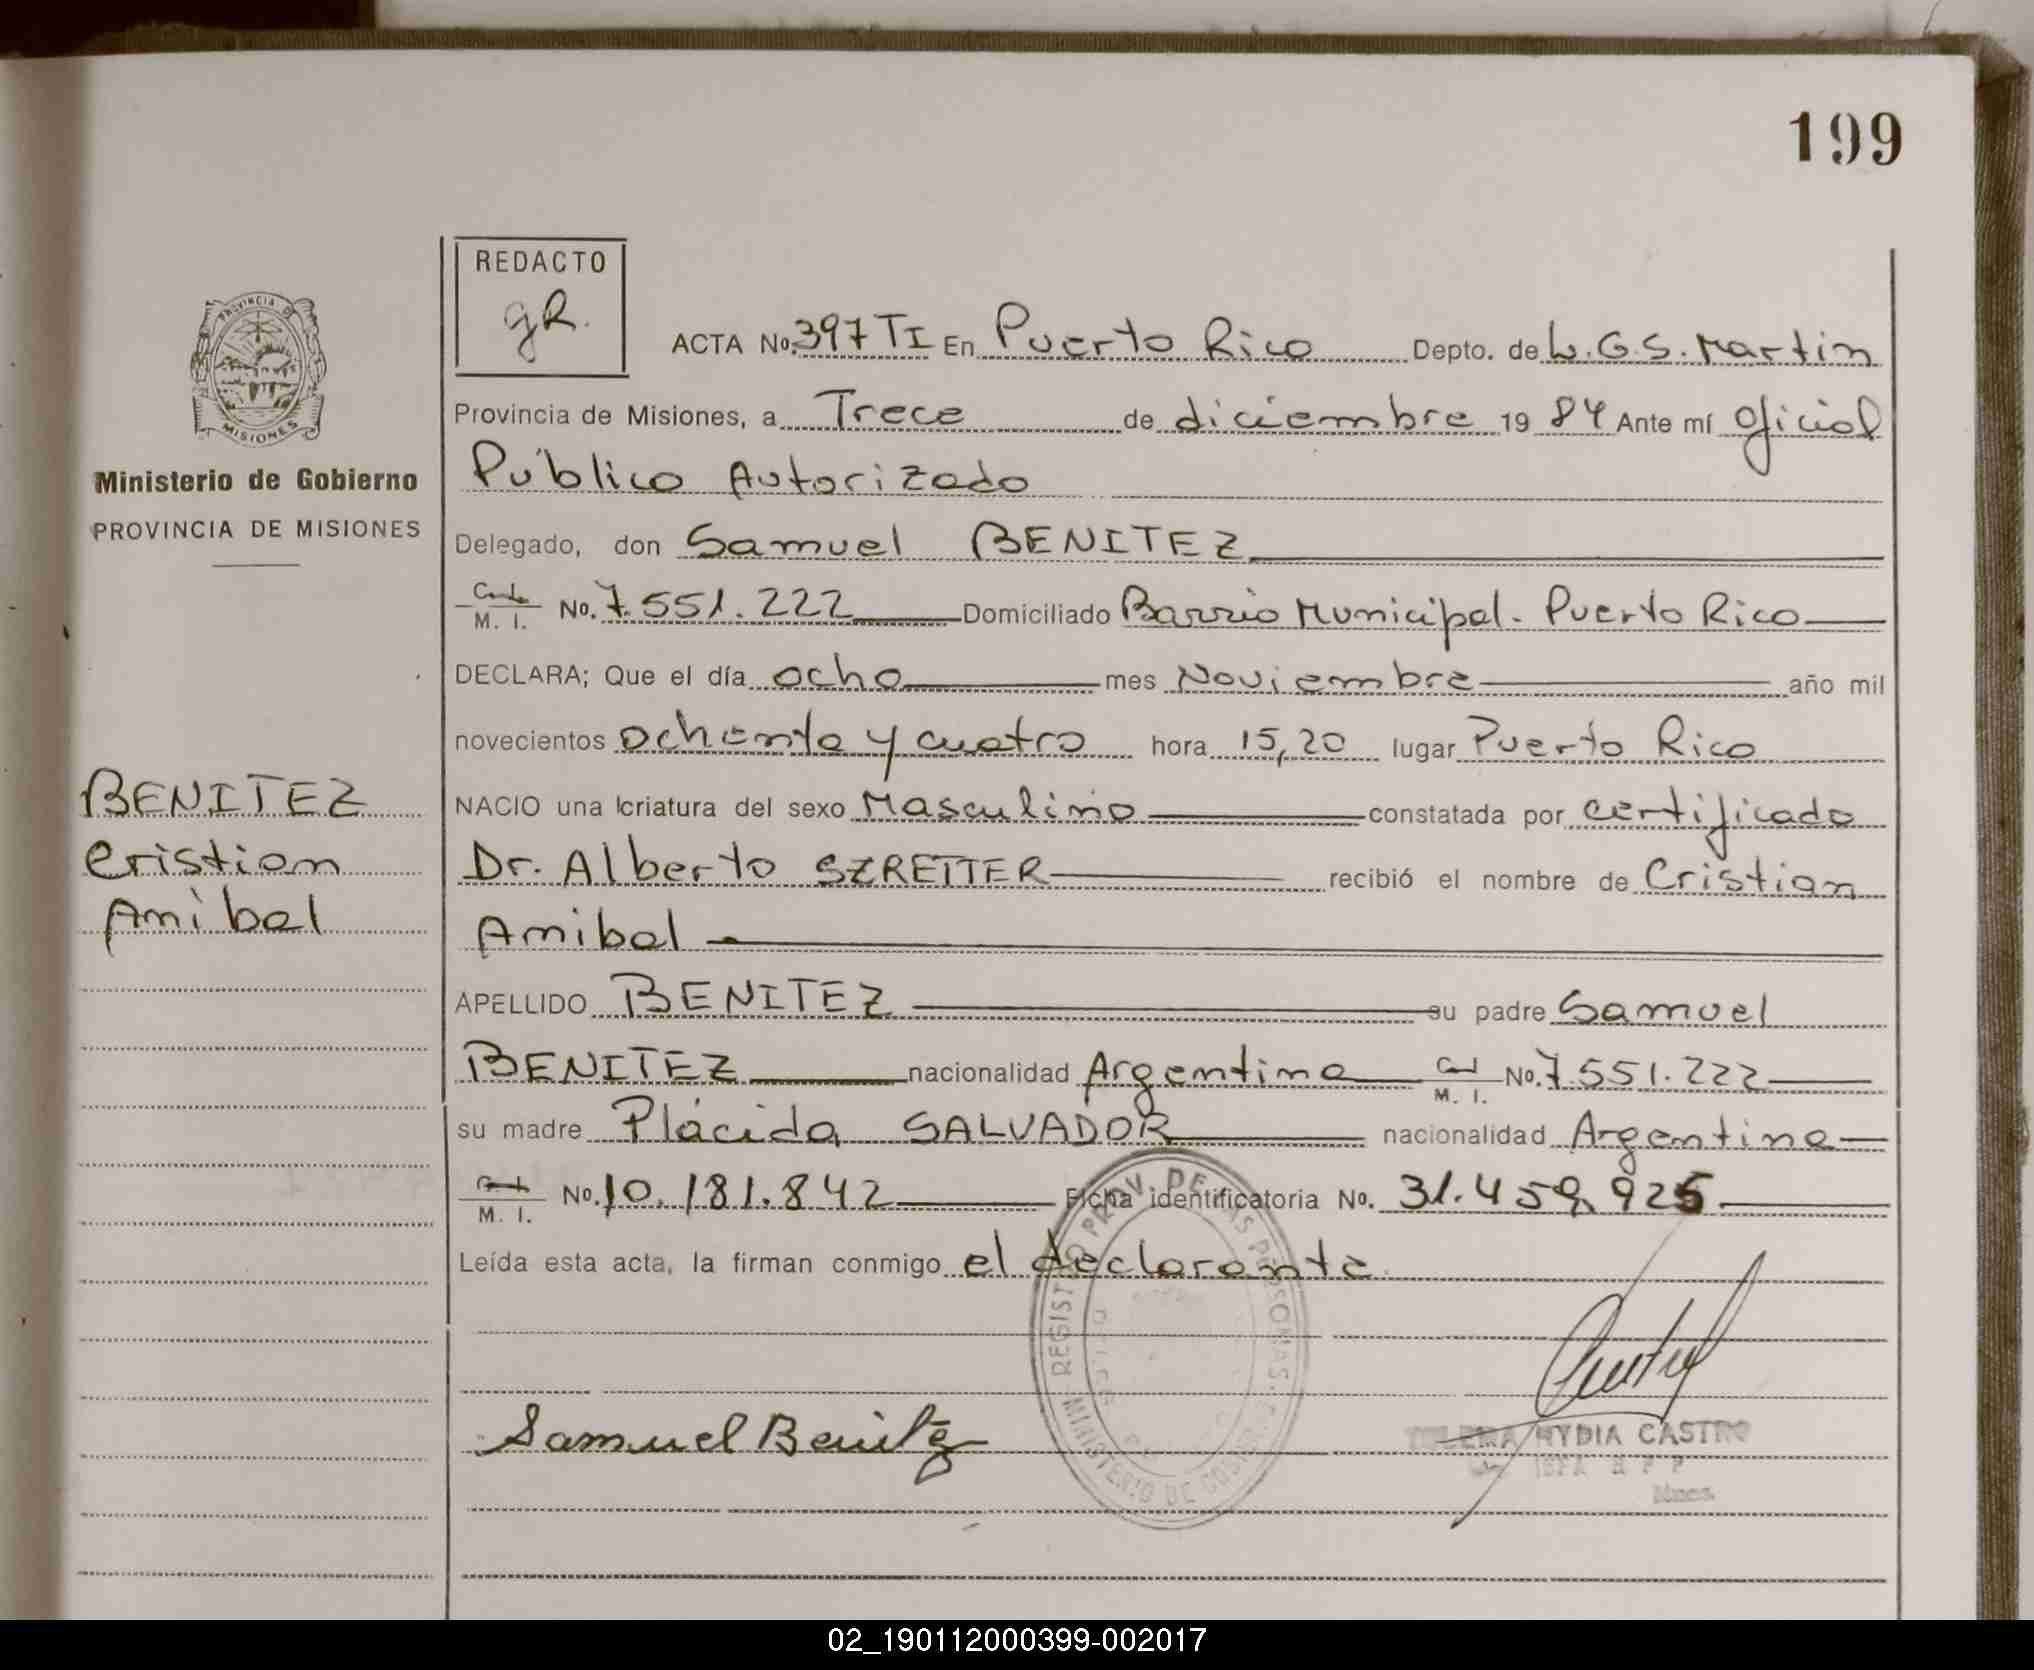 199
REDACTO
gR.
PROVINCIA DE
MISIONES
Ministerio de Gobierno
PROVINCIA DE MISIONES
BENITEZ
Cristian
Anibal
ACTA No. 397 TI En Puerto Rico Depto. de L.G.S. Martin
Provincia de Misiones, a Trece de diciembre 19 84 Ante mí Oficial
Público Autorizado
Delegado, don Samuel BENITEZ
M. I. No. 7.551.222 Domiciliado Barrio Municipal. Puerto Rico
DECLARA; Que el día ocho mes Noviembre año mil
novecientos ochenta y cuatro hora 15,20 lugar Puerto Rico
NACIO una criatura del sexo Masculino constatada por certificado
Dr. Alberto SZRETTER recibió el nombre de Cristian
Anibal
APELLIDO BENITEZ su padre Samuel
BENITEZ nacionalidad Argentina M. I. No. 7.551.222
su madre Plácida SALVADOR nacionalidad Argentina
M. I. No. 10.181.842 Ficha identificatoria No. 31.459.925
Leída esta acta, la firman conmigo el declarante
REGISTRO PROV. DE LAS PERSONAS
MINISTERIO DE
Samuel Benitez
HYDIA CASTRO
02_190112000399-002017